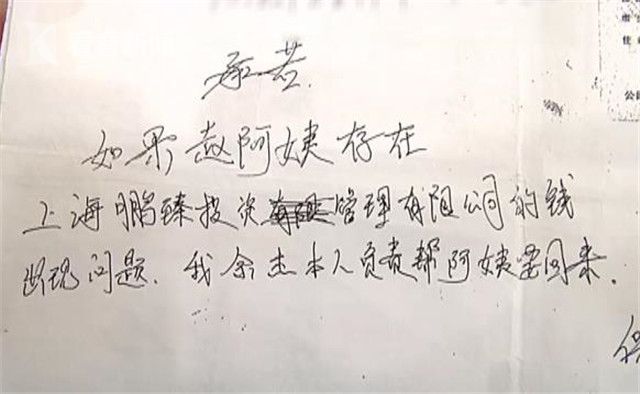 承若.
如果赵阿姨存在
上海鹏臻投资管理有限公司的钱
出现问题.我余杰本人负责帮阿姨要回来.
公司